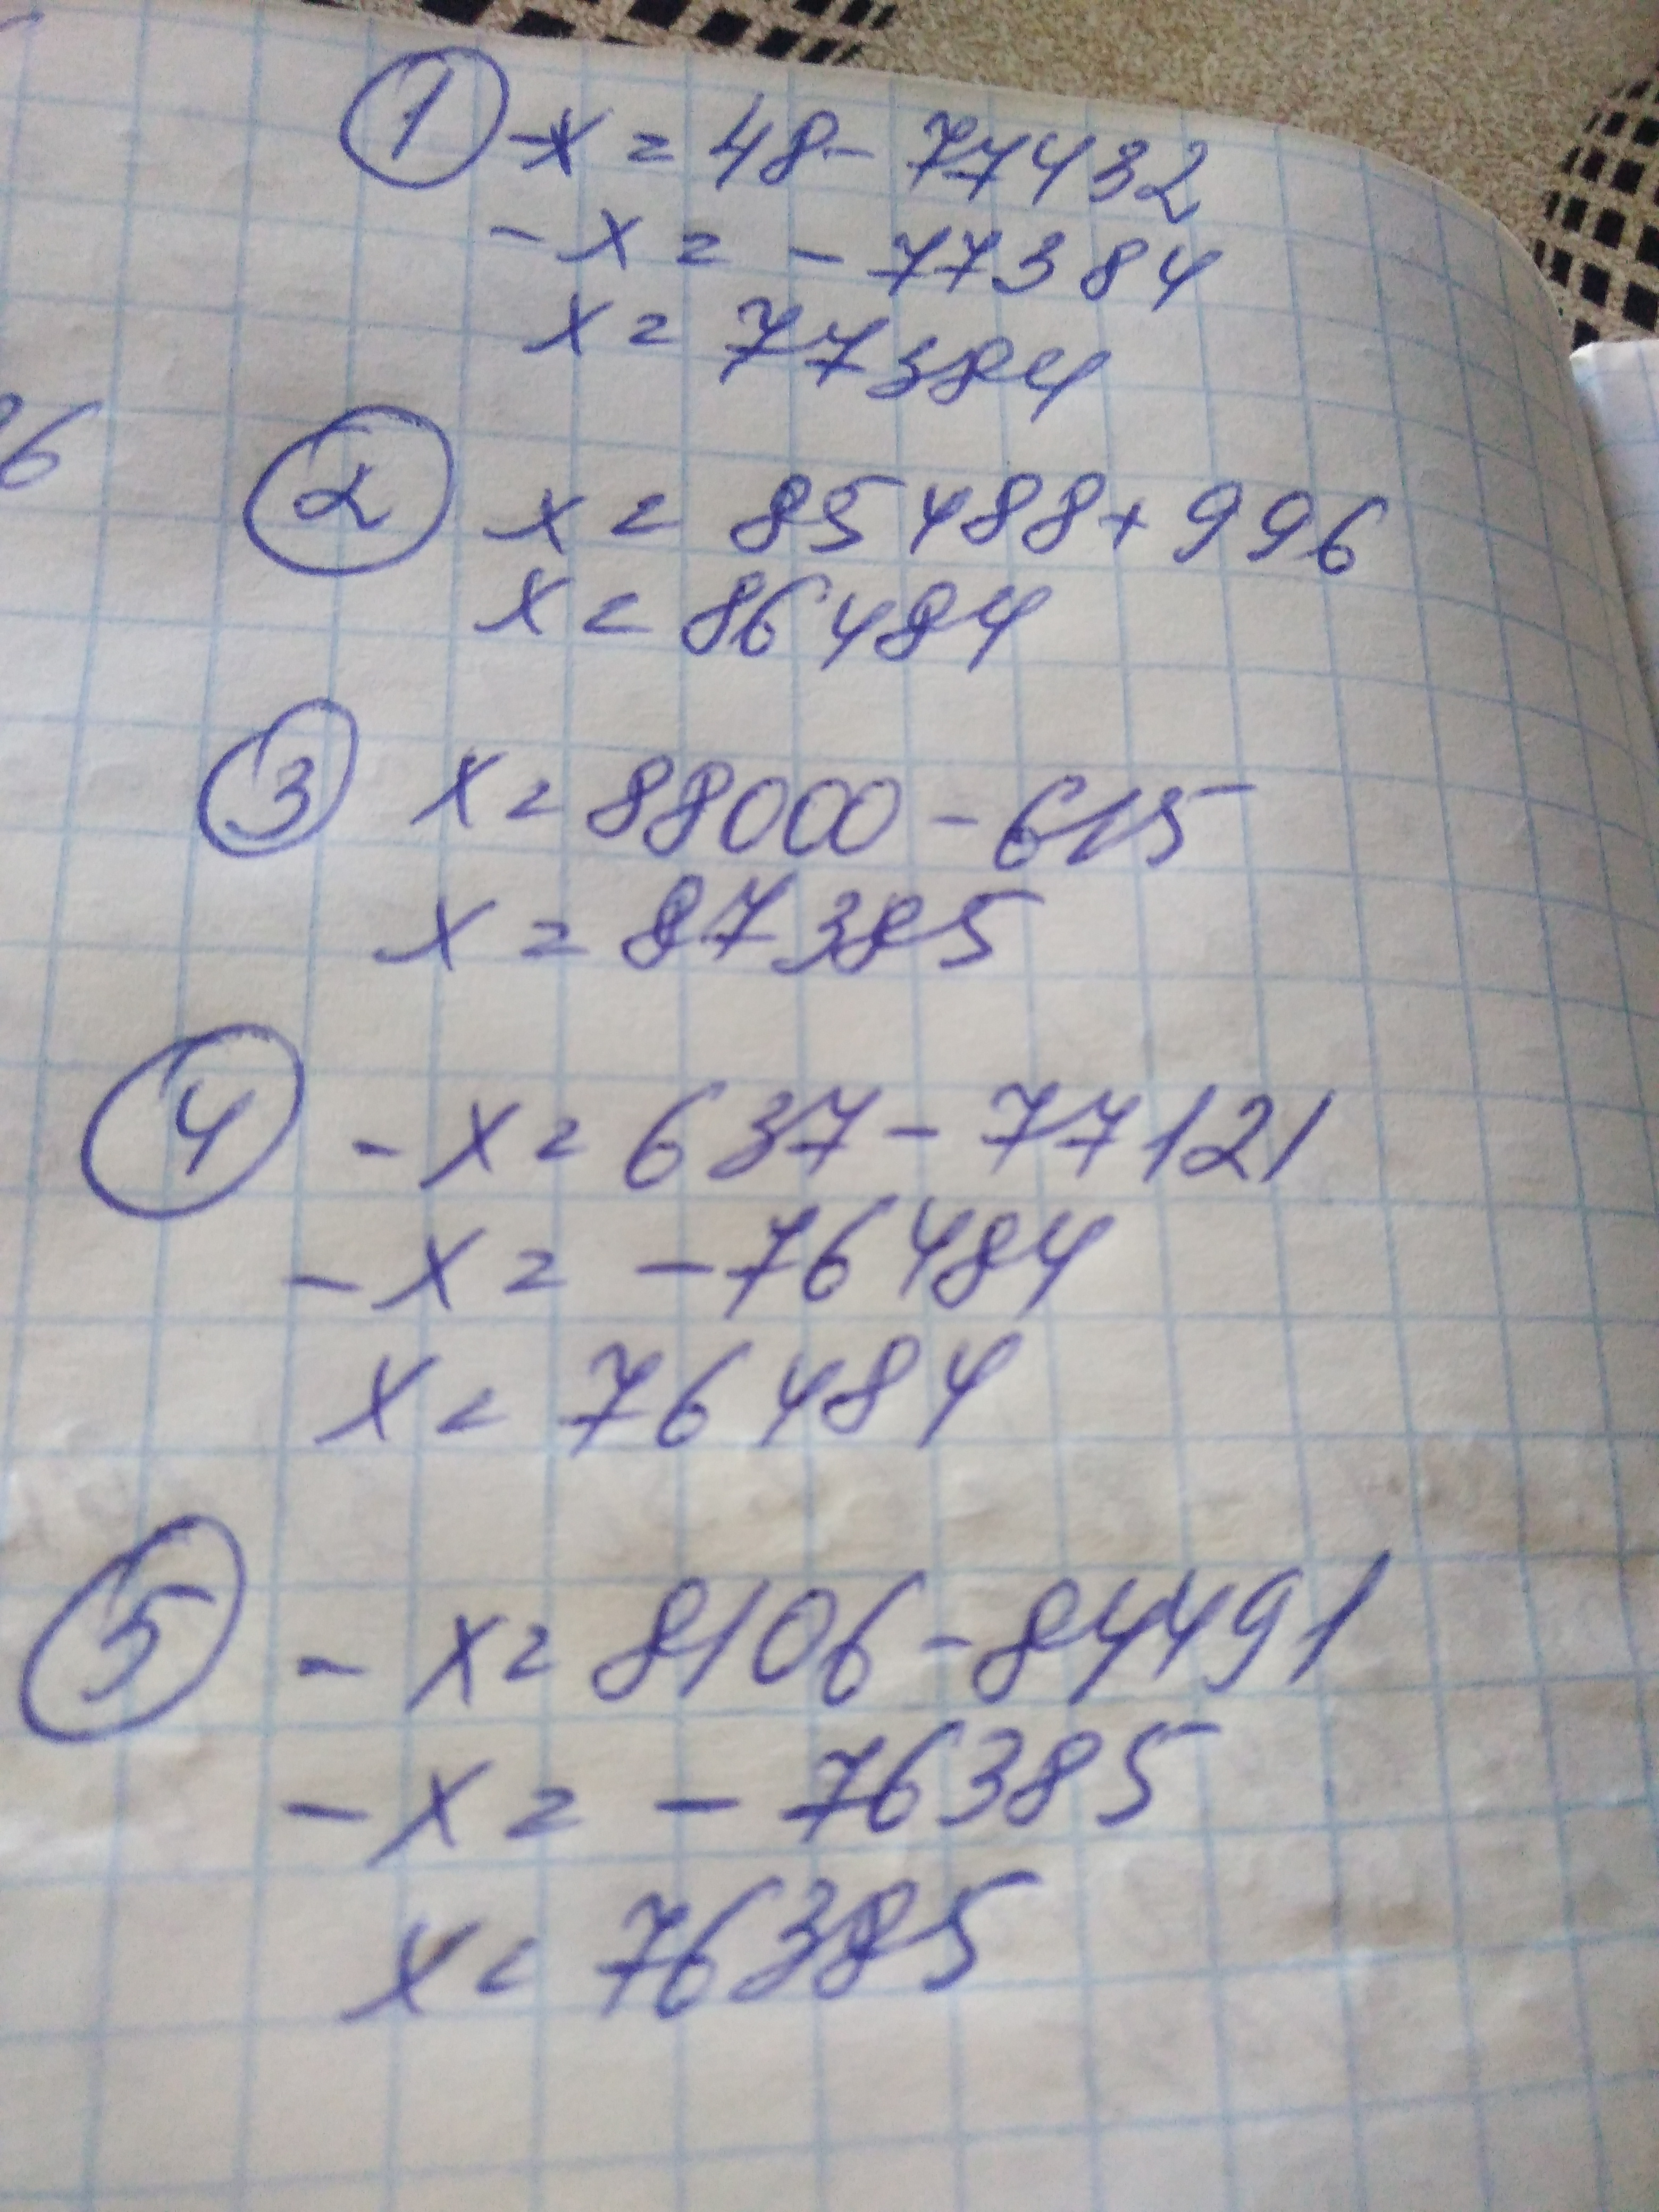 ① -x = 48 - 77432
- x = - 77384
x = 77384
② x = 85488 + 996
x = 86484
③ x = 88000 - 615
x = 87385
④ - x = 637 - 77121
- x = - 76484
x = 76484
⑤ - x = 8106 - 84491
- x = - 76385
x = 76385